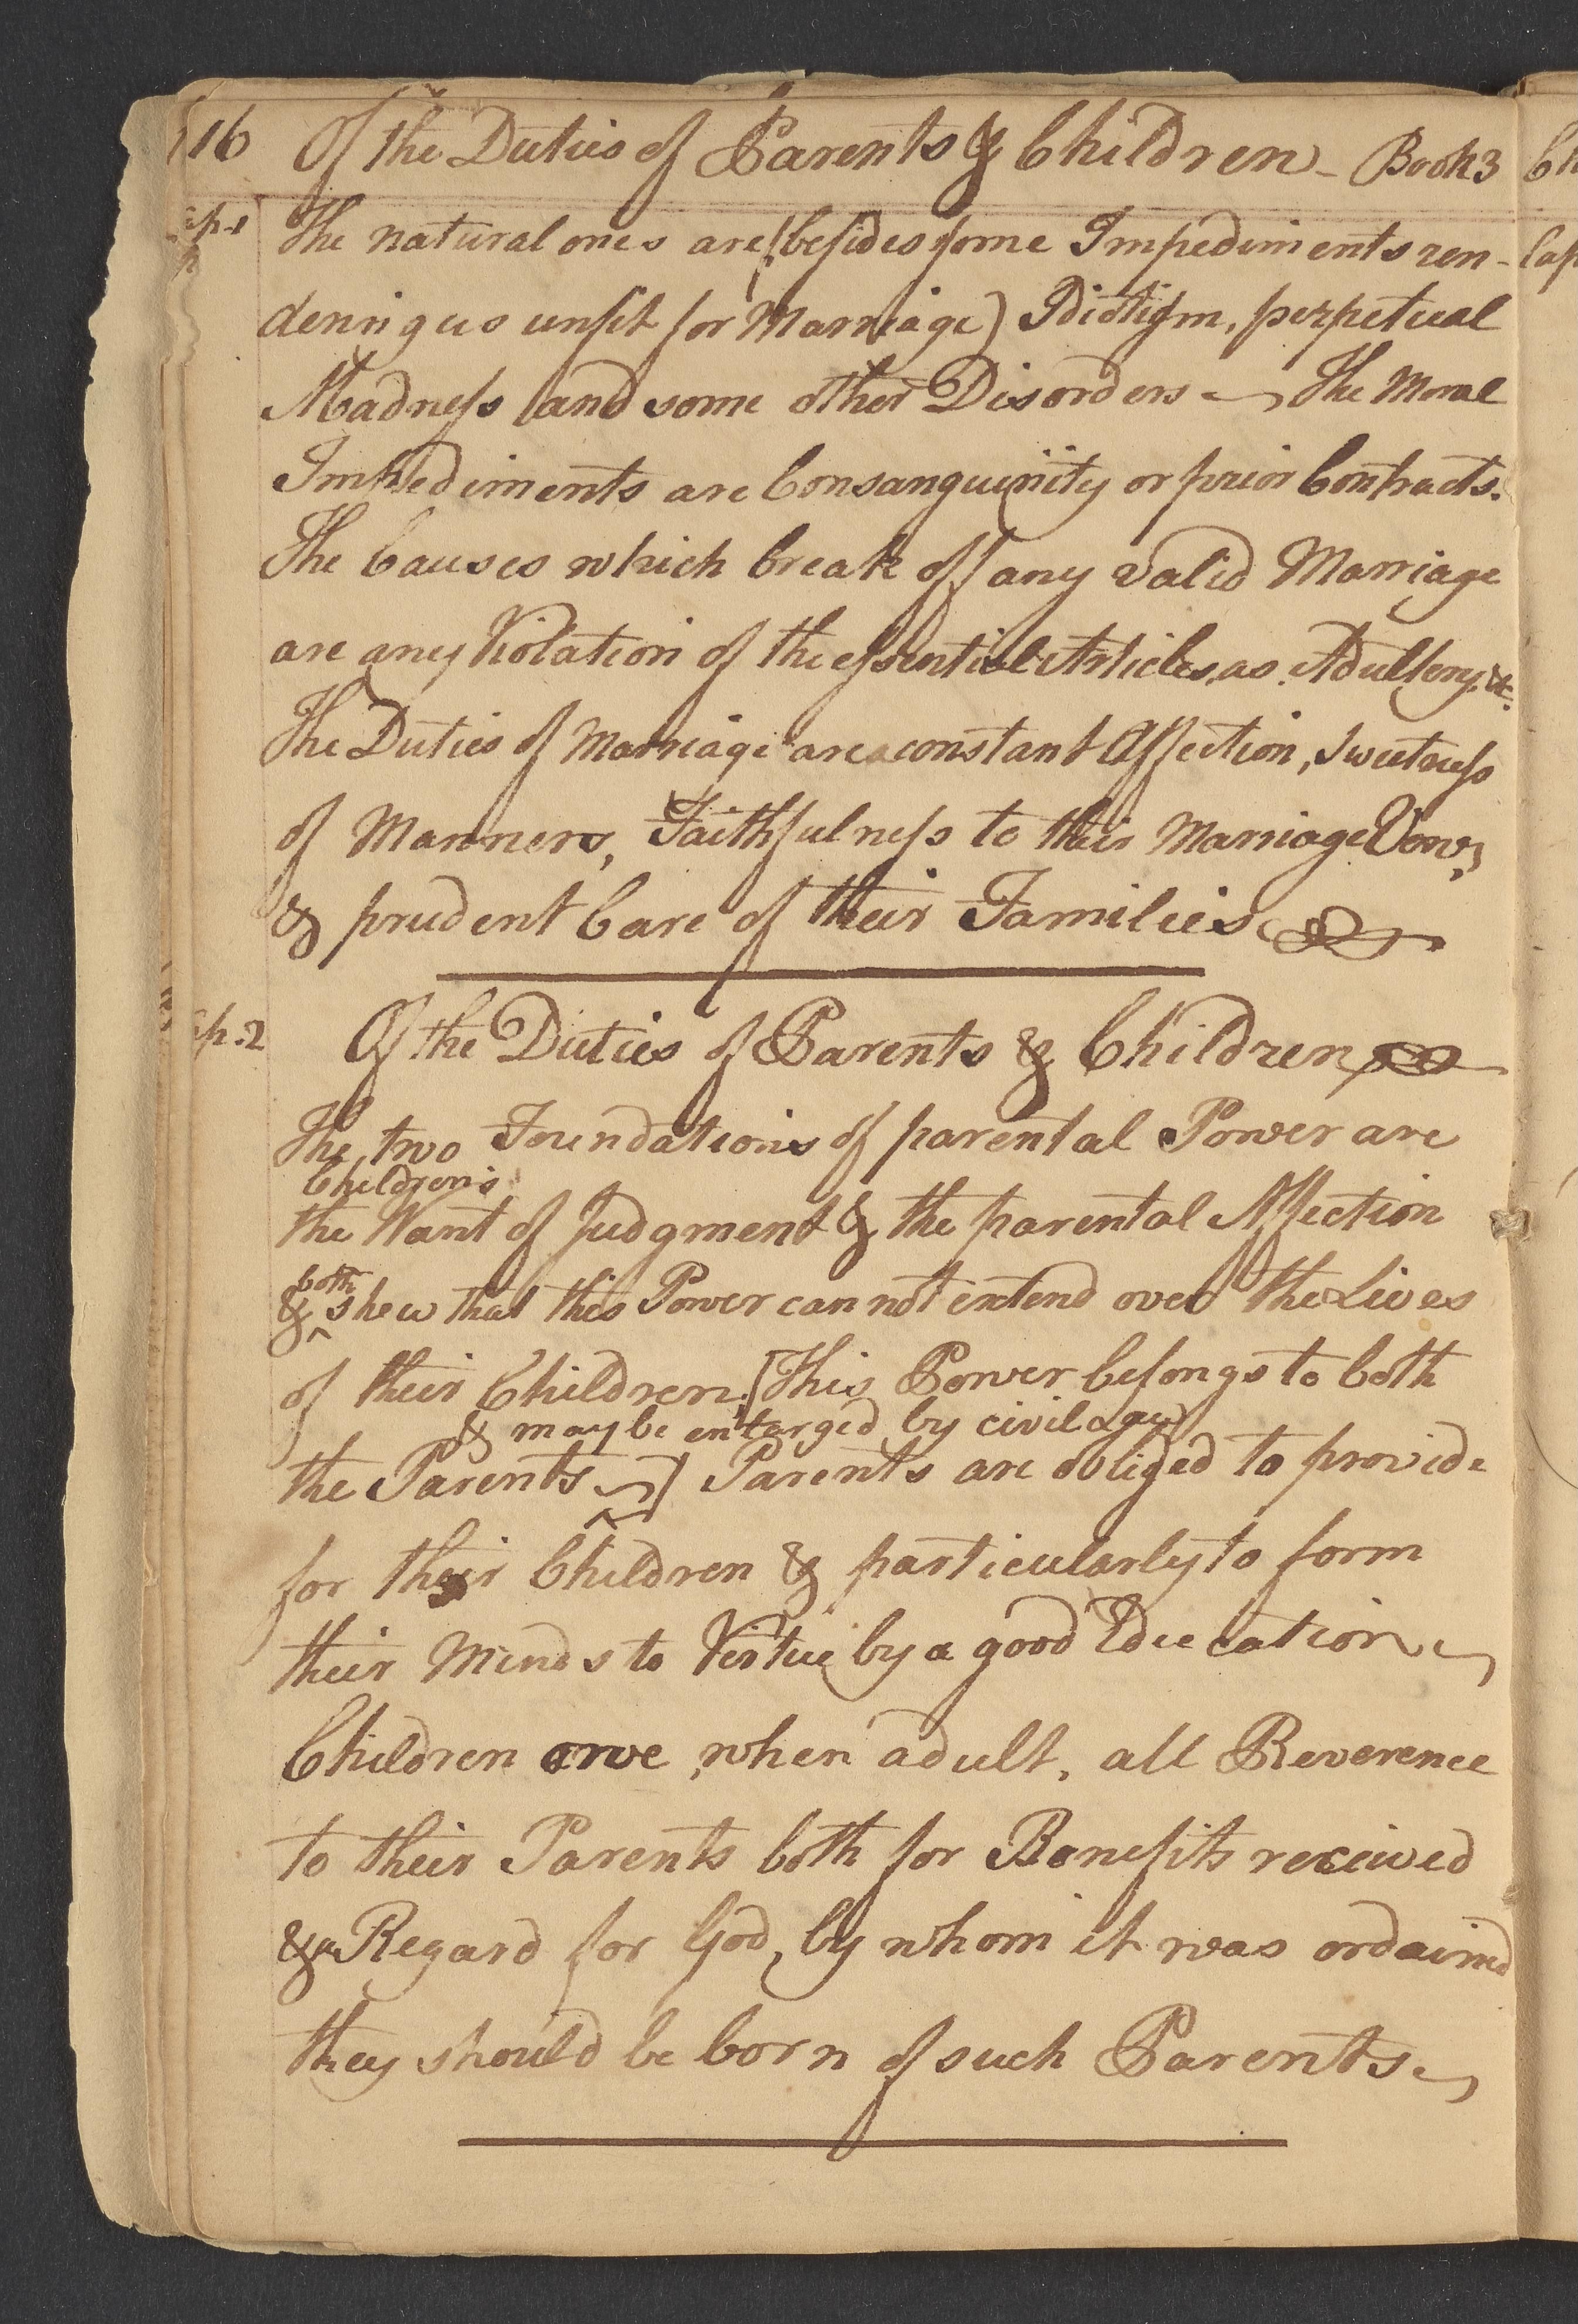 116 Of the Duties of Parents & Children - Book 3
The natural ones are (besides some Impediments ren-
dering us unfit for Marriage) Idiotism, perpetual
Madness and some other Disorders - The Moral
Impediments are Consanguinity or prior Contracts.
The Causes which break off any valid Marriage
are any Violation of the essential Articles, as Adultery &c.
The Duties of Marriage are a constant Affection, Sweetness
of Manners, Faithfulness to their Marriage Vows,
& prudent Care of their Families
ap. 2 Of the Duties of Parents & Children
The two Foundations of parental Power are
Children's
the Want of Judgment & the parental Affection
both
& shew that this Power cannot extend over the Lives
of their Children. [This Power belongs to both
& may be enlarged by civil Laws
the Parents -] Parents are obliged to provide
for their Children & particularly to form
their Minds to Virtue by a good Education -
Children owe, when adult, all Reverence
to their Parents both for Benefits received
& a Regard for God, by whom it was ordained
they should be born of such Parents -